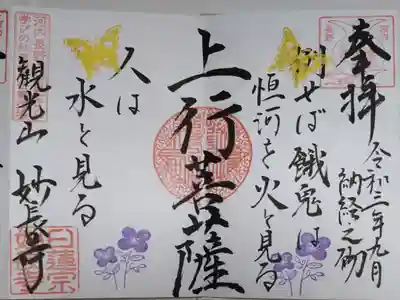 奉拝
令和二年九月
納経之砌
例せば餓鬼は
恒河を火と見る
上行菩薩
人は
水と見る
観光山 妙長寺
河内長野
学びの杜
日蓮宗